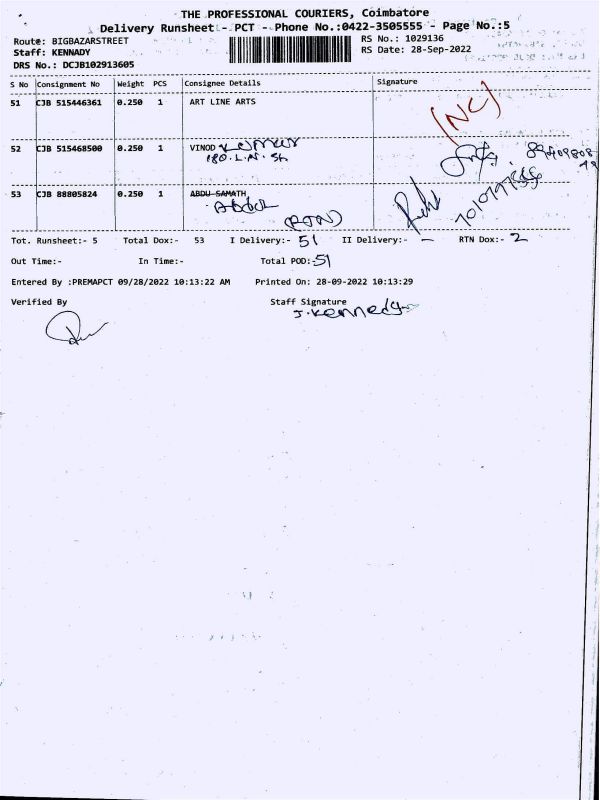 THE PROFESSIONAL COURIERS, Coimbatore
Delivery Runsheet - PCT - Phone No.:0422-3505555 - Page No.:5
Route: BIGBAZARSTREET RS No.: 1029136
Staff: KENNADY RS Date: 28-Sep-2022
DRS No.: DCJB102913605
S No Consignment No Weight PCS Consignee Details Signature
51 CJB 515446361 0.250 1 ART LINE ARTS (NC)
52 CJB 515468500 0.250 1 VINOD Kumar
180. L.N. St
53 CJB 88805824 0.250 1 ABDU SAMATH
Abdul
(RTN)
Tot. Runsheet:- 5 Total Dox:- 53 I Delivery:- 51 II Delivery:- - RTN Dox:- 2
Out Time:- In Time:- Total POD:-51
Entered By :PREMAPCT 09/28/2022 10:13:22 AM Printed On: 28-09-2022 10:13:29
Verified By Staff Signature
J.Kennedy